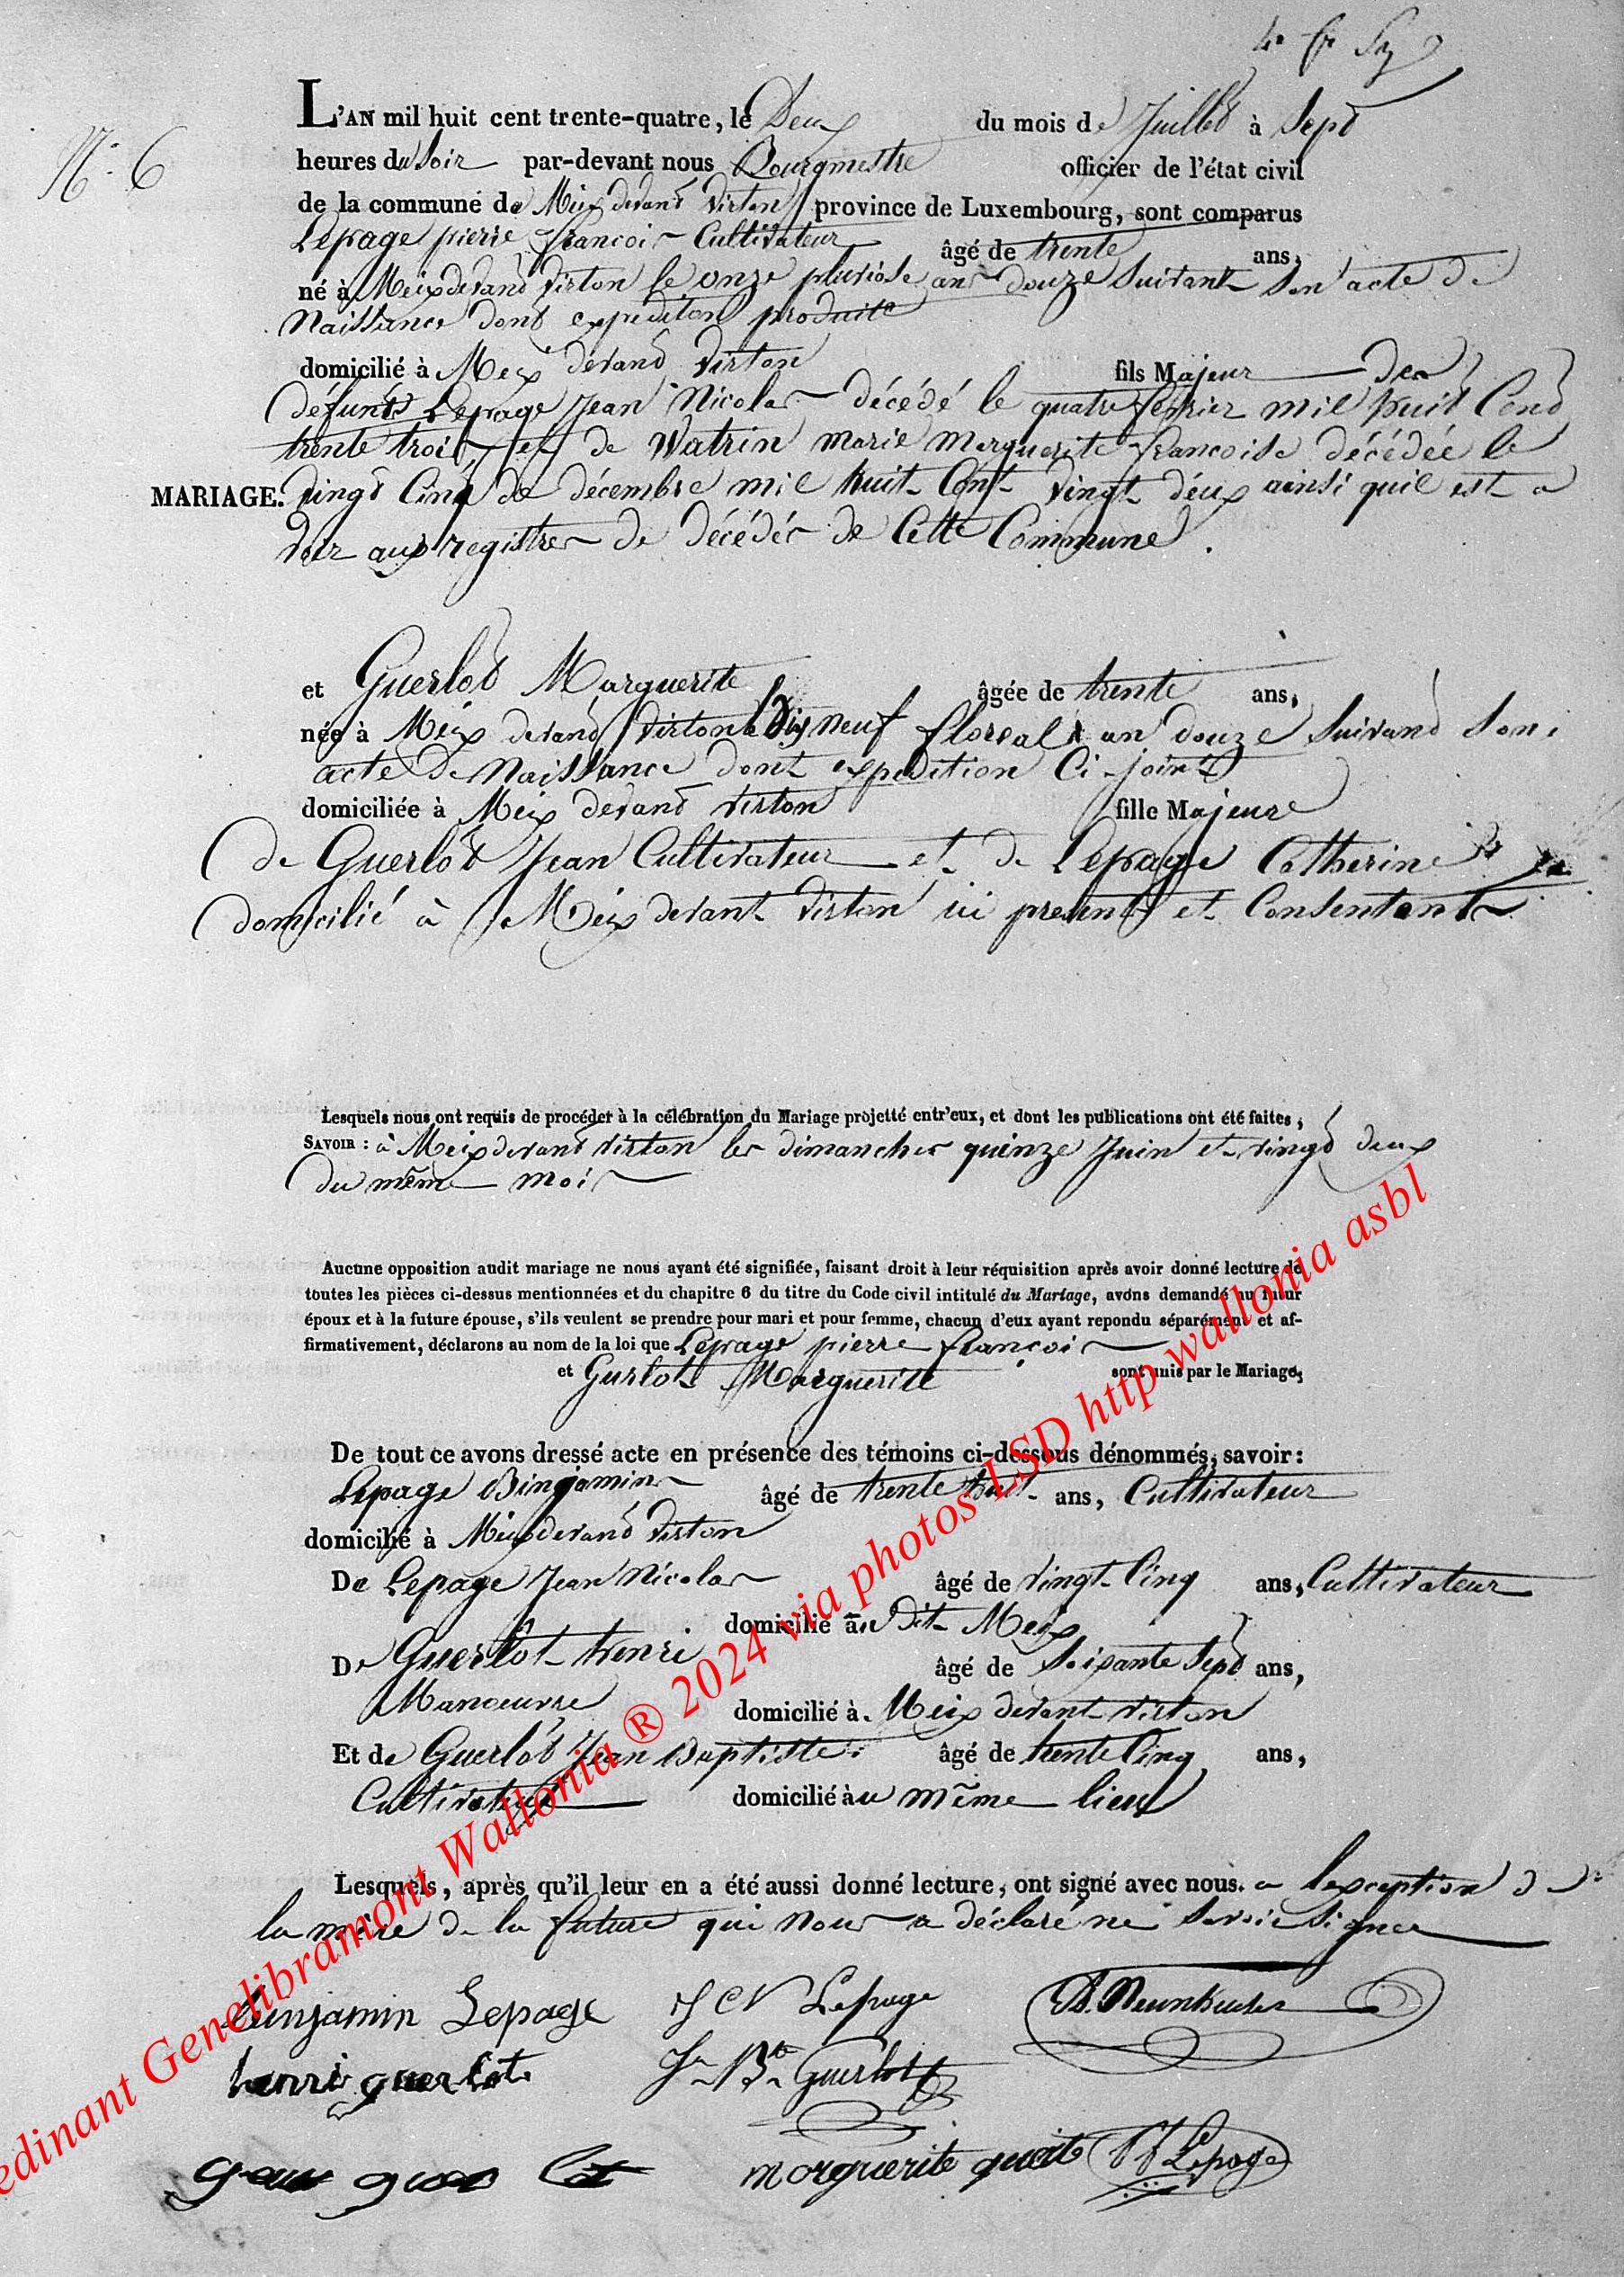 N° 6
L'AN mil huit cent trente-quatre, le Deux du mois de Juillet à Sept
heures du Soir par-devant nous Bourgmestre officier de l'état civil
de la commune de Meix devant Virton province de Luxembourg, sont comparus
Lepage pierre françois Cultivateur âgé de trente ans,
né à Meix devant Virton le onze pluviose an douze Suivant Son acte de
Naissance dont expedition produite
domicilié à Meix devant Virton fils Majeur des
défunts Lepage Jean Nicolas décédé le quatre fevrier mil huit Cent
trente trois et de Watrin marie Marguerite francoise décédée le
MARIAGE. vingt Cinq de décembre mil huit Cent vingt deux ainsi quil est a
voir aux registres de décédés de Cette Commune.
et Guerlot Marguerite âgée de trente ans,
née à Meix devant Virton le Dix neuf floreal an douze Suivant Son
acte de Naissance dont expedition Ci-joint
domiciliée à Meix devant Virton fille Majeure
de Guerlot Jean Cultivateur et de Lepage Catherine
domicilié à Meix devant Virton ici present et Consentants
Lesquels nous ont requis de procéder à la célébration du Mariage projetté entr'eux, et dont les publications ont été faites,
SAVOIR : à Meix devant Virton les dimanches quinze Juin et vingt deux
du même mois
Aucune opposition audit mariage ne nous ayant été signifiée, faisant droit à leur réquisition après avoir donné lecture de
toutes les pièces ci-dessus mentionnées et du chapitre 6 du titre du Code civil intitulé du Mariage, avons demandé au futur
époux et à la future épouse, s'ils veulent se prendre pour mari et pour femme, chacun d'eux ayant repondu séparément et af-
firmativement, déclarons au nom de la loi que Lepage pierre françois
et Gurlot Marguerite sont unis par le Mariage,
De tout ce avons dressé acte en présence des témoins ci-dessous dénommés, savoir :
Lepage Binjamin âgé de trente huit ans, Cultivateur
domicilié à Meix devant Virton
De Lepage Jean Nicolas âgé de vingt Cinq ans, Cultivateur
domicilié au dit Meix
De Guerlot henri âgé de Soixante Sept ans,
Manoeuvre domicilié à Meix devant Virton
Et de Guerlot Jean Baptiste âgé de trente Cinq ans,
Cultivateur domicilié au même lieu
Lesquels, après qu'il leur en a été aussi donné lecture, ont signé avec nous. a lexception de
la mère de la future qui nous a déclaré ne Savoir Signer
Benjamin Lepage J N Lepage
henri guerlot J. Bte Guerlot
marguerite Lepage
edinant Genelibramont Wallonia ® 2024 via photos LSD http wallonia asbl